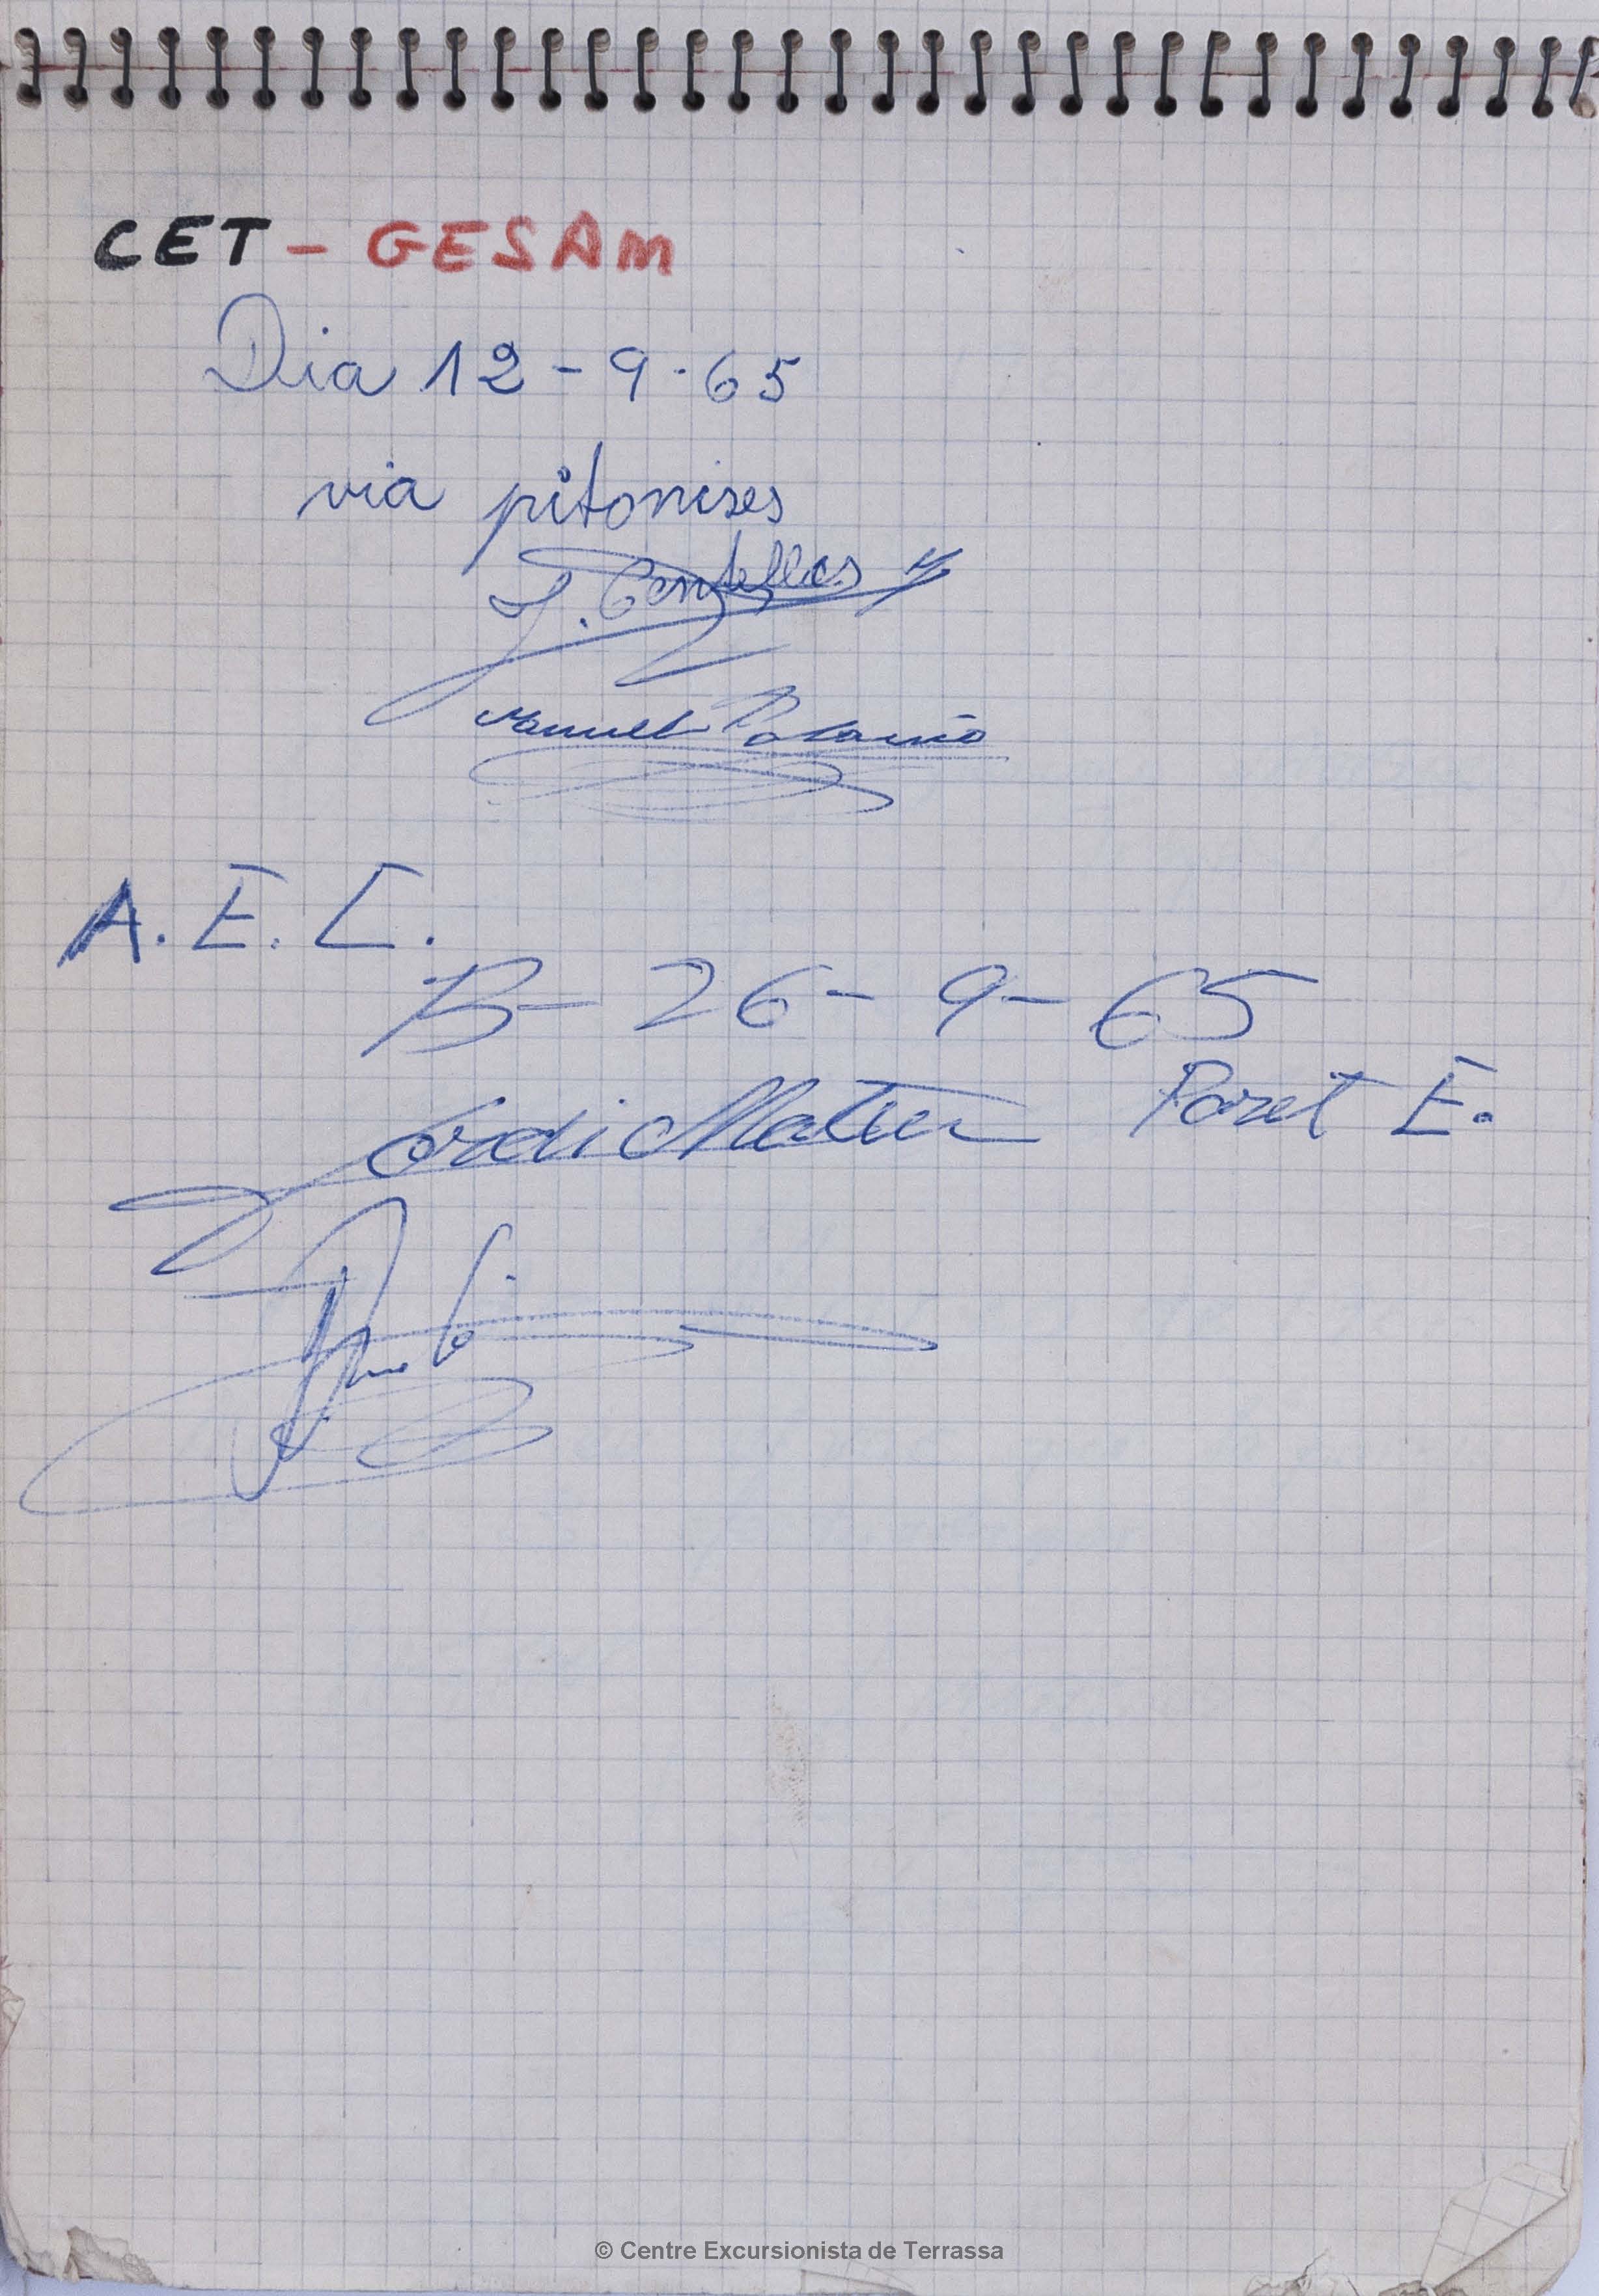 CET - GESAM
Dia 12 - 9 - 65
via pitonises
J. Centellas
Manuel
A. E. C.
B - 26 - 9 - 65
Jordi Mateu Paret E.
© Centre Excursionista de Terrassa